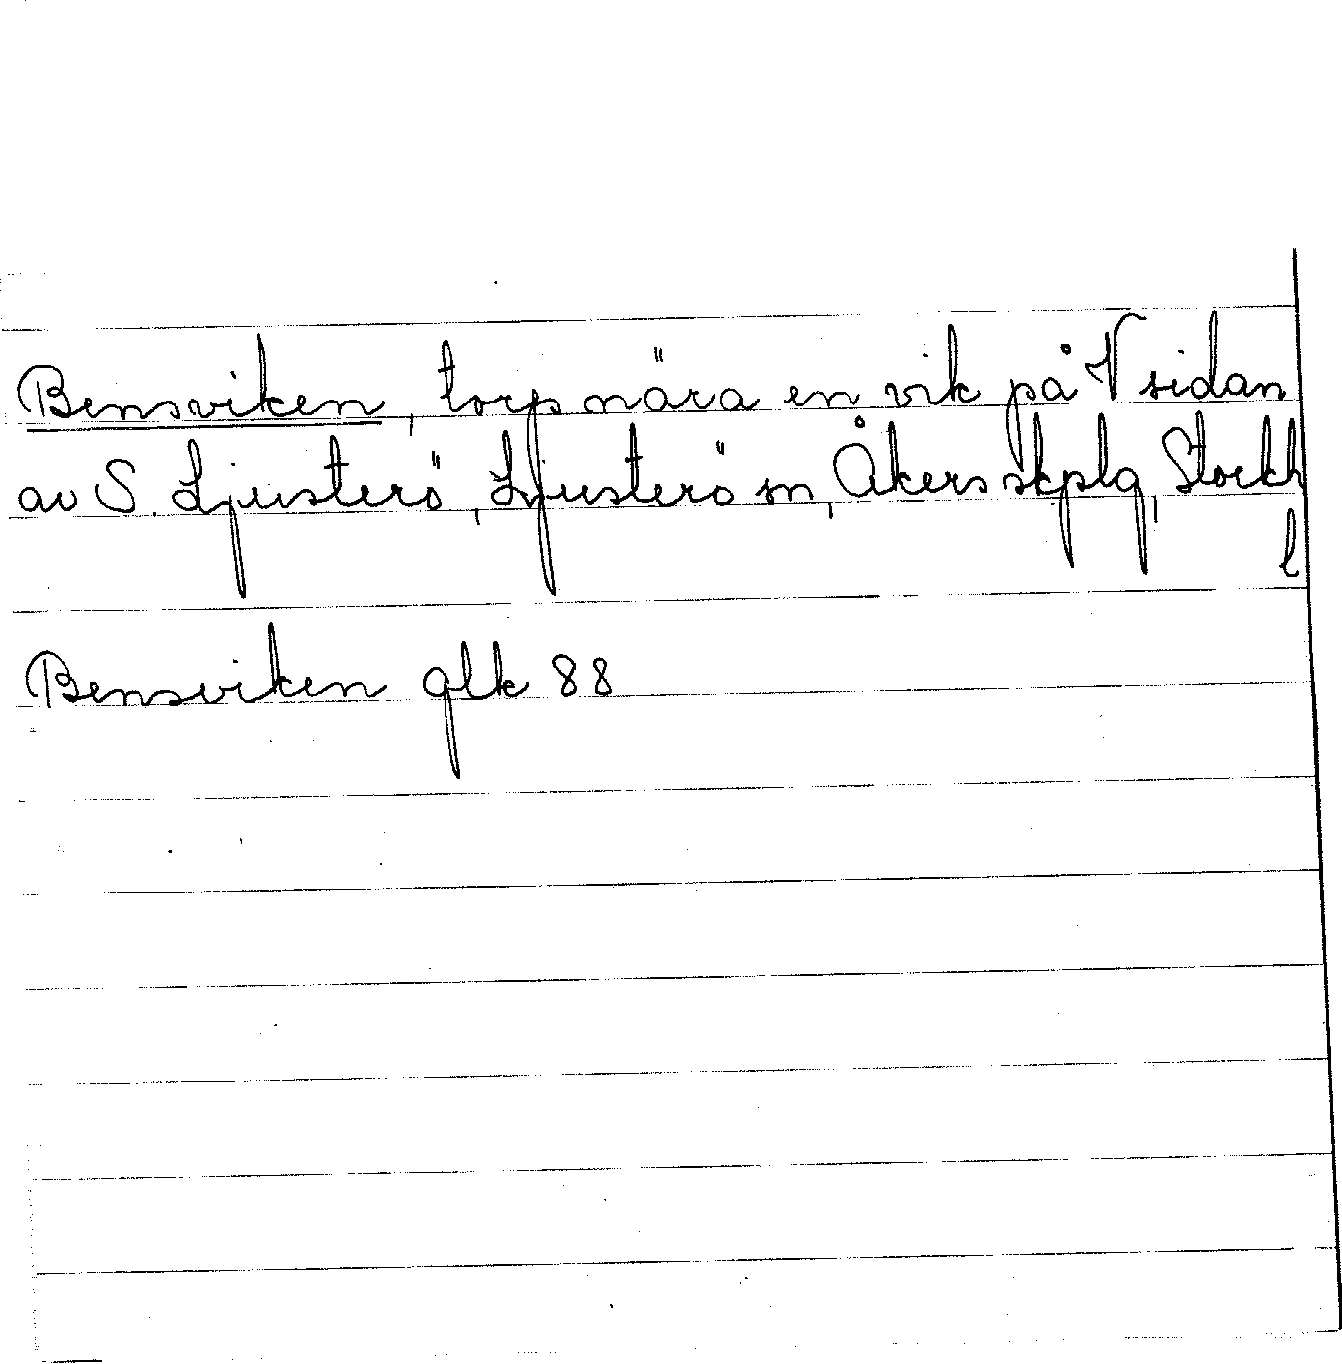 Bensviken, torp nära en vik på V sidan
av S. Ljusterö, Ljusterö sn, Åkers skplg, Stockh
l
Bensviken glk 88